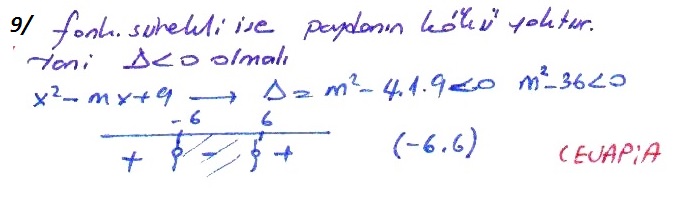 9/ fonk. sürekli ise paydanın kökü yoktur.
Yani Δ<0 olmalı
x²-mx+9 → Δ = m²-4.1.9<0 m²-36<0
-6 6
+ - + (-6.6)
CEVAP:A